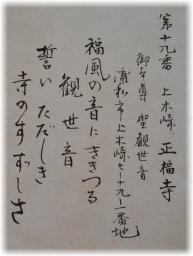 第十九番 上木崎 正福寺
御本尊 聖観世音
浦和市上木崎七ー十九ー一番地
福風の音にききつる
観世音
誓いただしき
寺のすずしさ